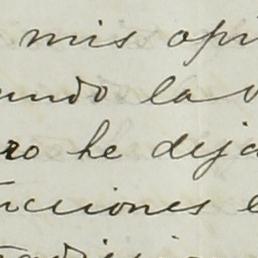 mis opi
undo la v
ro he deja
nciones e